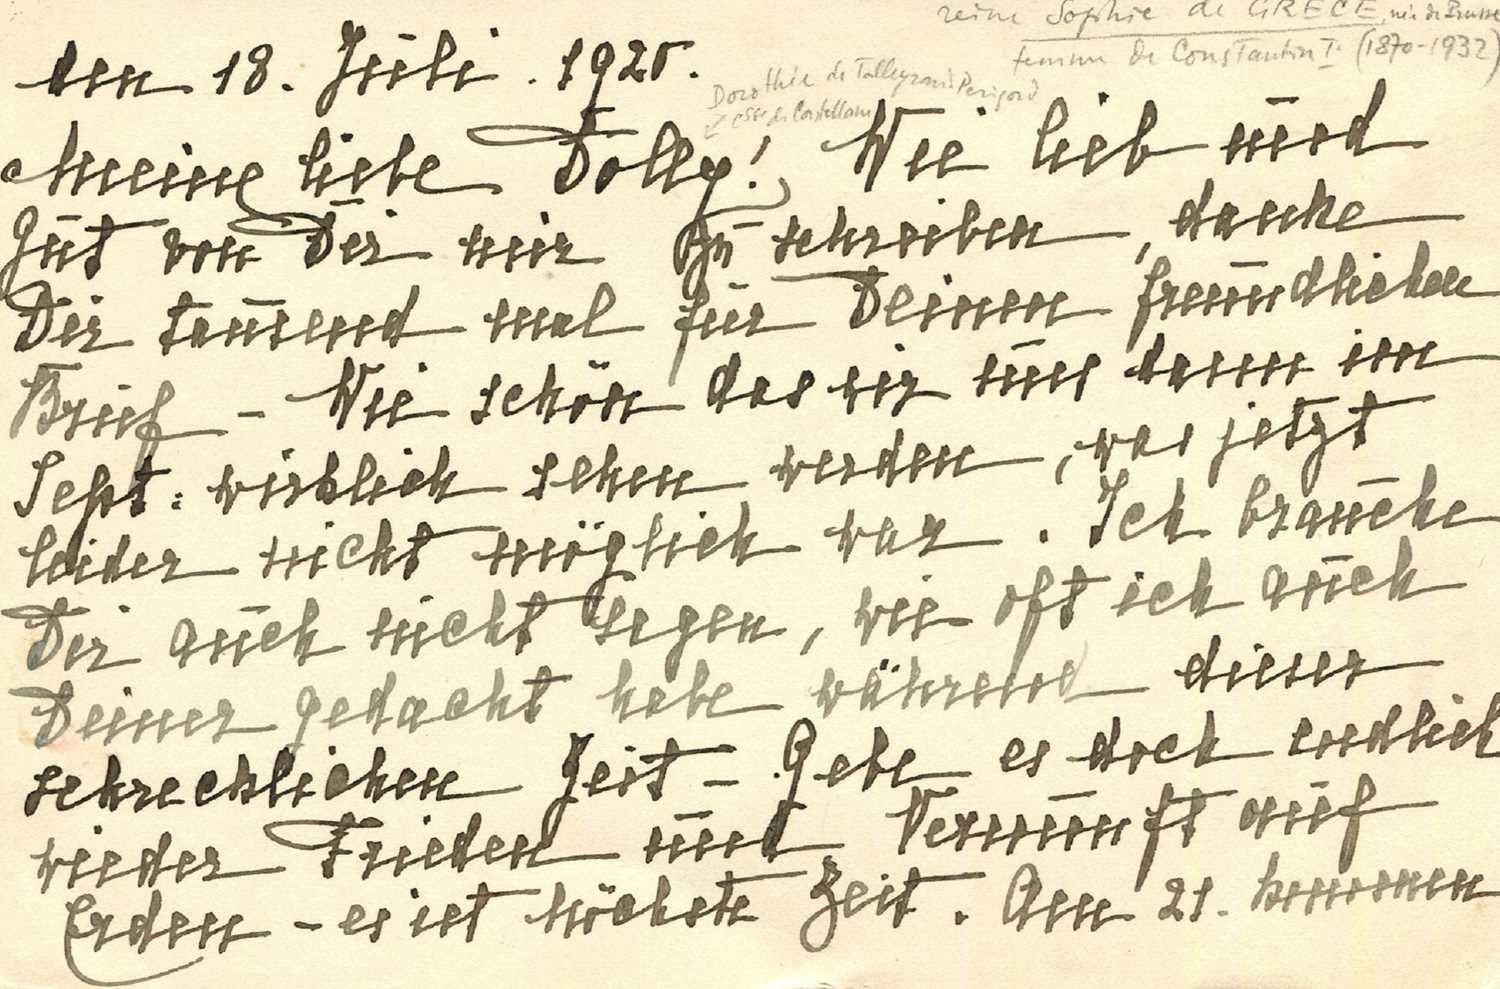 reine Sophie de GRECE, née de Prusse
femme de Constantin I. (1870-1932)
den 18. Juli. 1920.
Dorothée de Talleyrand Périgord
Csse de Castellane
Meine liebe Dolly! Wie lieb und
gut von Dir mir zu schreiben, danke
Dir tausend mal für Deinen freundlichen
Brief - Wie schön das wir uns dann im
Sept: wirklich sehen werden, was jetzt
leider nicht möglich war. Ich brauche
Dir auch nicht sagen, wie oft ich auch
Deiner gedacht habe während dieser
schrecklichen Zeit - Gebe es doch endlich
wieder Frieden und Vernunft auf
Erden - es ist höchste Zeit. Am 21. kommen